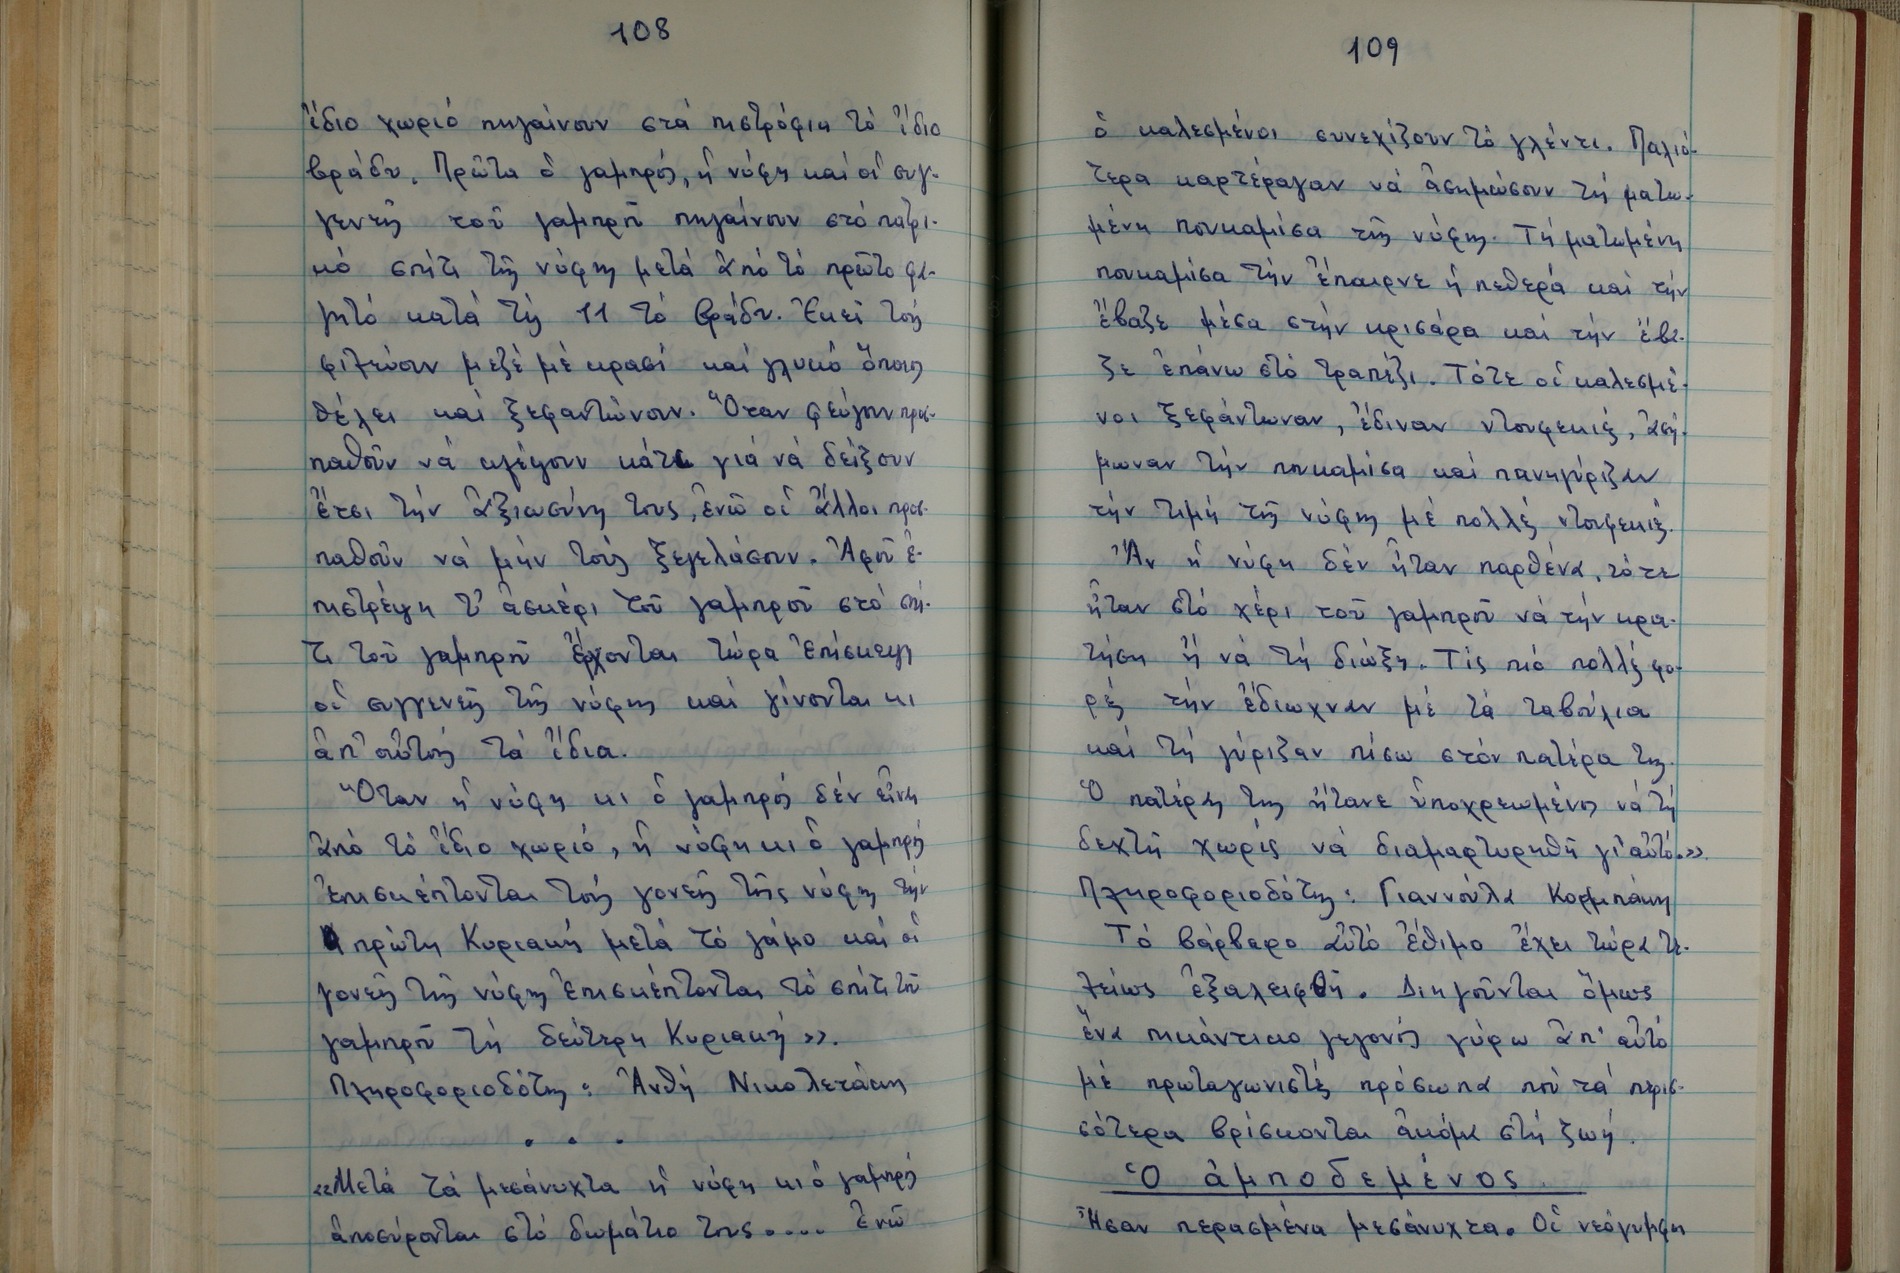 108
ἴδιο χωριό πηγαίνουν στά πιστρόφια τό ἴδιο
βράδυ. Πρῶτα ὁ γαμπρός, ἡ νύφη καί οἱ συγ-
γενεῖς τοῦ γαμπροῦ πηγαίνουν στό πατρι-
κό σπίτι τῆς νύφης μετά ἀπό τό πρῶτο φα-
γητό κατά τίς 11 τό βράδυ. Ἐκεῖ τούς
φιλεύουν μεζέ μέ κρασί καί γλυκό ὅποιος
θέλει καί ξεφαντώνουν. Ὅταν φεύγουν προσ-
παθοῦν νά κλέψουν κάτι γιά νά δείξουν
ἔτσι τήν ἀξιωσύνη τους, ἐνῶ οἱ ἄλλοι προσ-
παθοῦν νά μήν τούς ξεγελάσουν. Ἀφοῦ ἐ-
πιστρέψη τ' ἀσκέρι τοῦ γαμπροῦ στό σπί-
τι τοῦ γαμπροῦ ἔρχονται τώρα ἐπίσκεψη
οἱ συγγενεῖς τῆς νύφης καί γίνονται κι
ἀπ' αὐτούς τά ἴδια.
Ὅταν ἡ νύφη κι ὁ γαμπρός δέν εἶναι
ἀπό τό ἴδιο χωριό, ἡ νύφη κι ὁ γαμπρός
ἐπισκέπτονται τούς γονεῖς τῆς νύφης τήν
πρώτη Κυριακή μετά τό γάμο καί οἱ
γονεῖς τῆς νύφης ἐπισκέπτονται τό σπίτι τοῦ
γαμπροῦ τή δεύτερη Κυριακή».
Πληροφοριοδότης: Ἀνθή Νικολετάκη
. . .
«Μετά τά μεσάνυχτα ἡ νύφη κι ὁ γαμπρός
ἀποσύρονται στό δωμάτιο τους.... ἐνῶ
109
ὁ καλεσμένοι συνεχίζουν τό γλέντι. Παλιό-
τερα καρτέραγαν νά ἀσημώσουν τή ματω-
μένη πουκαμίσα τῆς νύφης. Τή ματωμένη
πουκαμίσα τήν ἔπαιρνε ἡ πεθερά καί τήν
ἔβαζε μέσα στήν κρισάρα καί τήν ἔβα-
ζε ἐπάνω στό τραπέζι. Τότε οἱ καλεσμέ-
νοι ξεφάντωναν, ἔδιναν ντουφεκιές, ἀσή-
μωναν τήν πουκαμίσα καί πανηγύριζαν
τήν τιμή τῆς νύφης μέ πολλές ντουφεκιές.
Ἄν ἡ νύφη δέν ἦταν παρθένα, τότε
ἦταν στό χέρι τοῦ γαμπροῦ νά τήν κρα-
τήση ἤ νά τή διώξη. Τίς πιό πολλές φο-
ρές τήν ἔδιωχναν μέ τά ταβούλια
καί τή γύριζαν πίσω στόν πατέρα της.
Ὁ πατέρας της ἤτανε ὑποχρεωμένος νά τή
δεχτῆ χωρίς νά διαμαρτυρηθῆ γι' αὐτό.».
Πληροφοριοδότης: Γιαννούλα Κορμπάκη
Τό βάρβαρο αὐτό ἔθιμο ἔχει τώρα τε-
λείως ἐξαλειφθῆ. Διηγοῦνται ὅμως
ἕνα πικάντικο γεγονός γύρω ἀπ' αὐτό
μέ πρωταγωνιστές πρόσωπα πού τά περισ-
σότερα βρίσκονται ἀκόμα στή ζωή.
Ὁ ἀμποδεμένος
Ἦσαν περασμένα μεσάνυχτα. Οἱ νεόνυμφοι